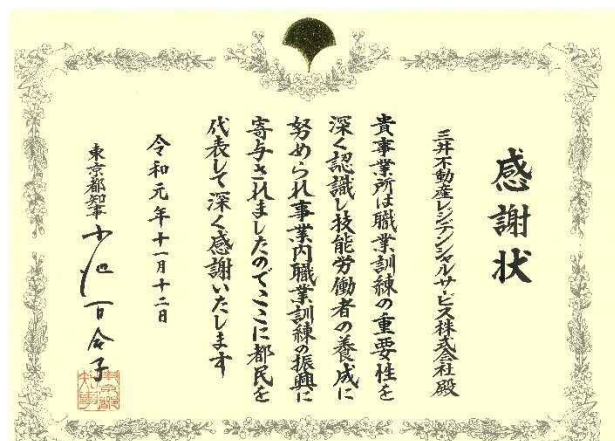 感謝状
三井不動産レジデンシャルサービス株式会社殿
貴事業所は職業訓練の重要性を
深く認識し技能労働者の養成に
努められ事業内職業訓練の振興に
寄与されましたのでここに都民を
代表して深く感謝いたします
令和元年十一月十二日
東京都知事 小池百合子